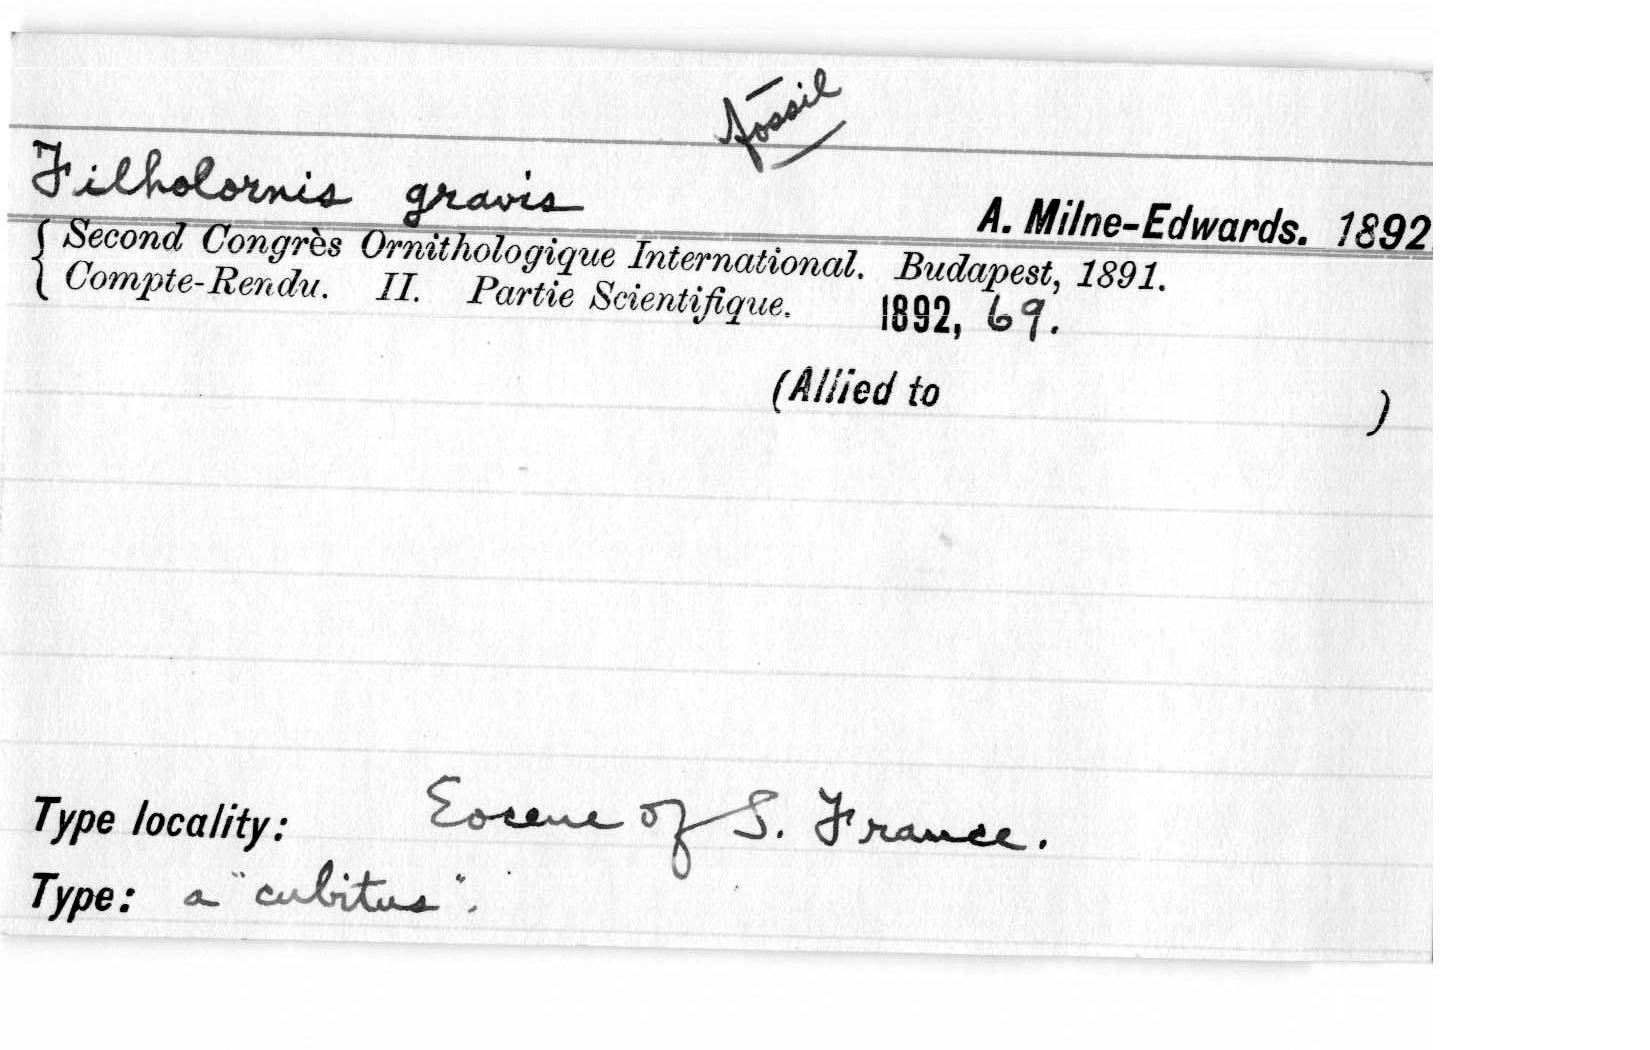 fossil
Filholornis gravis
A. Milne-Edwards. 1892
{ Second Congrès Ornithologique International. Budapest, 1891.
Compte-Rendu. II. Partie Scientifique. 1892, 69.
(Allied to )
Type locality: Eocene of S. France.
Type: a "cubitus".